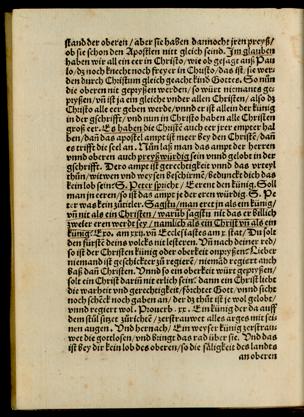 stand der oberen / aber sie haben dannocht jren preyß /
ob sie schon den Apostlen nit gleich seind. Im glauben
haben wir all ein eer in Christo / wie ob gesagt auß Pau
lo / dz noch knecht noch freyer in Christo / das ist / sie wer
den durch Christum gleich geacht kind Gottes. So nun
die oberen nit gepryßen werden / so würt niemants ge
pryßen / vñ ist ja ein gleiche vnder allen Christen / also dz
Christo alle eer geben werde / vnnd er ist allein der künig
in der gschrifft / vnd nun in Christo haben alle Christen
groß eer. Es haben die Christē auch eer jrer empter hal
ben / dañ das apostel ampt ist meer bey den Christē / dañ
es trifft die seel an. Nun laß man das ampt der herren
vnnd oberen auch preyßwürdig sein vnnd gelobt in der
gschrifft. Dero ampt ist gerechtigkeit vnnd das vrteyl
thůn / witwen vnd weysen beschirmē / bedunckt dich das
kein lob sein? S. Peter spricht / Eerent den künig. Soll
man jn eeren / so ist das ampt je der eren würdig. S. Pe
ter was kein züriler. Sagstu / man eret jn als ein künig /
vñ nit als ein Christen / warüb sagstu nit das er billich
zweier eren werdt sey / namlich als ein Christ vñ als ein
künig? Exo. am xxij. vñ Ecclesiastes am x. stat / Du solt
den fürstē deins volcks nit lesteren. Vñ nach deiner red /
so ist der Christen künig oder oberkeit onpryß? Lieber
niemand ist geschickter zů regierē / niemād regiert auch
baß dañ Christen. Vnnd so ein oberkeit würt gepryßen /
solt ein Christ darüm nit erlich sein? dann ein Christ liebt
die warheit vnd gerechtigkeit / förchtet Gott / vnnd sicht
noch schēck noch gaben an / der dz thůt ist je wol gelobt /
vnnd regiert wol. Prouerb. xx. Ein künig der da auff
dem stůl sitzet zů richtē / zerstrawet alles arges mit sei
nen augen. Vnd hernach / Ein weyser künig zerstraw
wet die gottlosen / vnd bringt das rad über sie. Vnd das
ist bey dir kein lob des oberen / so die säligkeit des landes
an oberen